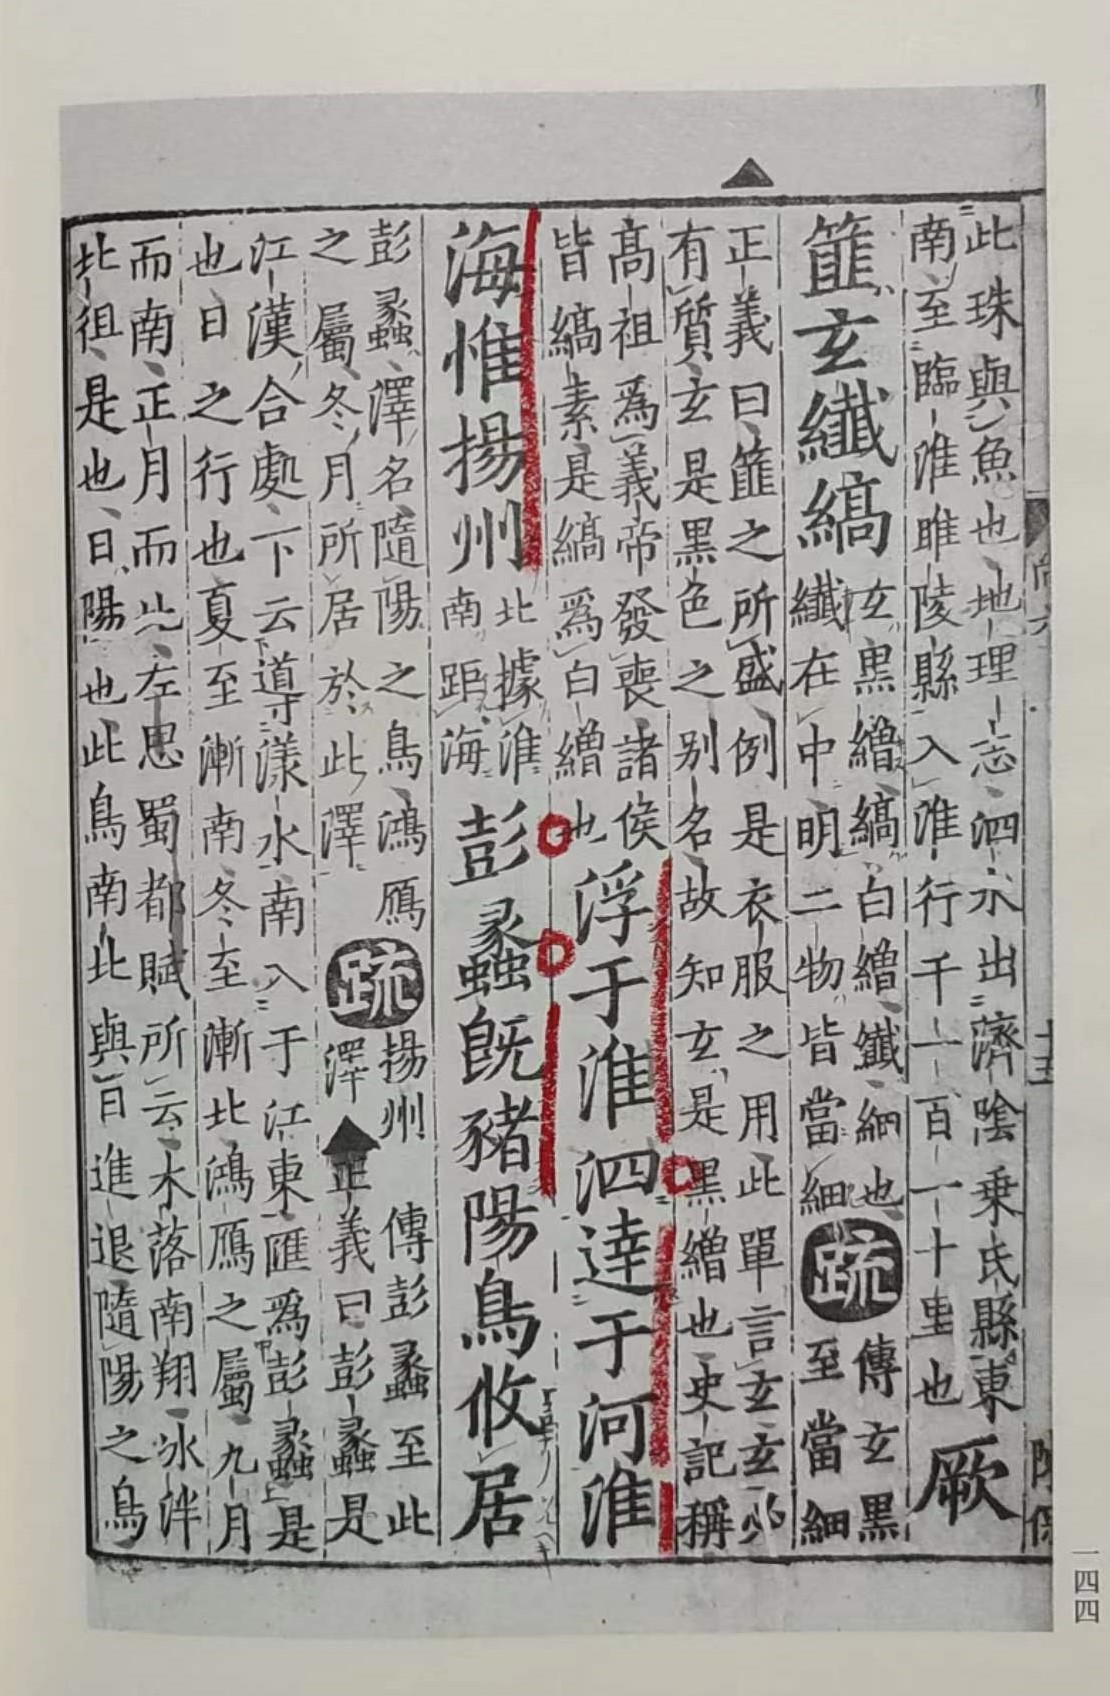 此珠與魚也地理志泗水出濟陰乘氏縣東
南至臨淮雎陵縣入淮行千一百一十里也
厥
篚玄纖縞
玄黑繒縞白繒纖細也
纖在中明二物皆當細
疏
傳玄黑
至當細
正義曰篚之所盛例是衣服之用此單言玄玄必
有質玄是黑色之别名故知玄是黑繒也史記稱
髙祖爲義帝發喪諸侯
皆縞素是縞爲白繒也
浮于淮泗達于河淮
海惟揚州
北據淮
南距海
彭蠡旣豬陽鳥攸居
彭蠡澤名隨陽之鳥鴻鴈
之屬冬月所居於此澤
疏
揚州 傳彭蠡至此
澤 正義曰彭蠡是
江漢合處下云導漾水南入于江東匯爲彭蠡是
也日之行也夏至漸南冬至漸北鴻鴈之屬九月
而南正月而北左思蜀都賦所云木落南翔冰泮
北徂是也日陽也此鳥南北與日進退隨陽之鳥
一四四